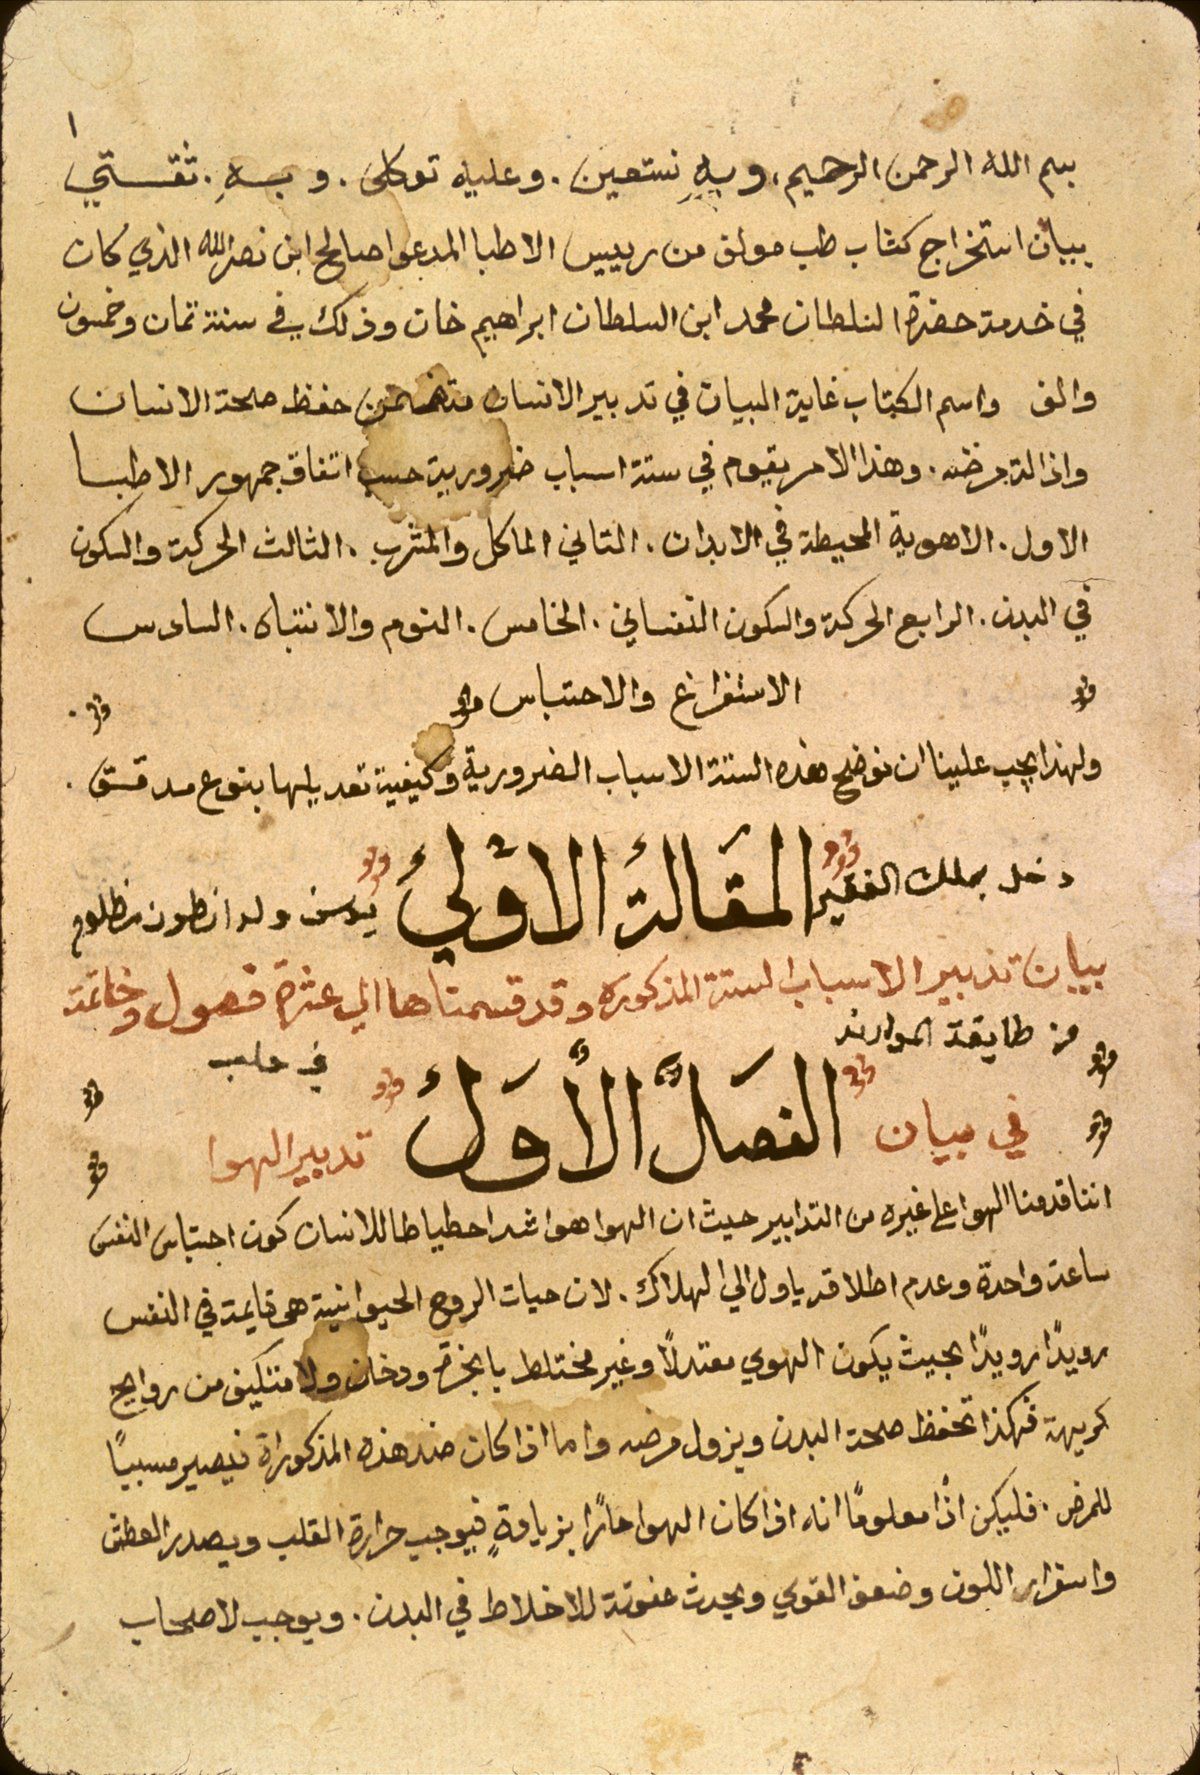 ١
بسم الله الرحمن الرحيم، وبهِ نستعين . وعليه توكلى . وبـهِ . ثقـتي
ببيان استخراج كتاب طب مولف من رييس الاطبا المدعوا صالح ابن نصرالله الذي كان
في خدمة حضرة السلطان محمد ابن السلطان ابراهيم خان وذلك في سنة تمان وخمسون
والف واسم الكتاب غاية البيان في تدبير الانسان متضمن حفظ صحة الانسان
واذالة مرضه . وهذا الامر يقوم في ستة اسباب ضرورية حسب اتفاق جمهور الاطبا
الاول . الاهوية المحيطة في الابدان . التاني الماكل والمشرب . الثالث الحركة والسكون
في البدن . الرابع الحركة والسكون النفساني . الخامس . النوم والانتباه . السادس
الاستفراغ والاحتباس
ولهذا يجب علينا ان نوضح هذه الستة الاسباب الضرورية وكيفية تعديلها بنوع مدقق .
المقالة الاولىُ
دخل بملك الفقير يوسف ولد انطون مظلوم
بيان تدبير الاسباب الستة المذكوره وقد قسمناها الي عشرة فصول وخاتمة
من طايفة الموارنه في حلب
الفصل الأول
في بيان تدبير الهوا
اننا قدمنا الهوا على غيره من التدابير حيث ان الهوا هو اشد احطياطا للانسان كون احتباس النفس
ساعة واحدة وعدم اطلاقه ياول الي الهلاك . لان حيات الروح الحيوانية هى قايمة في النفس
رويدًا رويدًا بحيث يكون الهوي معتدلًا وغير مختلط بابخرة ودخان ولا متكيف من روايح
كريهة فهكذا تحفظ صحة البدن ويزول مرضه واما اذا كان ضد هذه المذكوراة فيصير مسببًا
للمرض . فليكن اذًا معلومًا انه اذا كان الهوا حارًا بزيادةٍ فيوجب حرارة القلب ويصدر العطش
واسفرار اللون وضعف القوي ويحدث عفونة للاخلاط في البدن . ويوجب لاصحاب